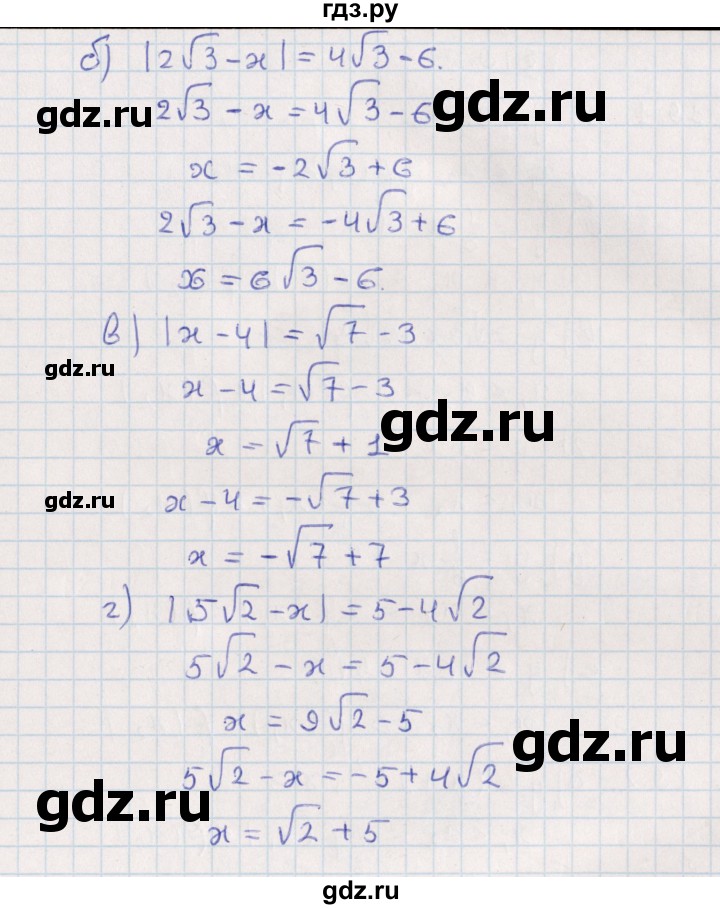 гдз.ру
б) |2√3 - x| = 4√3 - 6.
gdz.ru
2√3 - x = 4√3 - 6
gdz.ru
x = -2√3 + 6
2√3 - x = -4√3 + 6
gdz.ru
x = 6√3 - 6.
в) |x - 4| = √7 - 3
gdz.ru
x - 4 = √7 - 3
gdz.ru
x = √7 + 1
gdz.ru
x - 4 = -√7 + 3
x = -√7 + 7
г) |5√2 - x| = 5 - 4√2
gdz.ru
5√2 - x = 5 - 4√2
x = 9√2 - 5
gdz.ru
5√2 - x = -5 + 4√2
gdz.ru
x = √2 + 5
gdz.ru